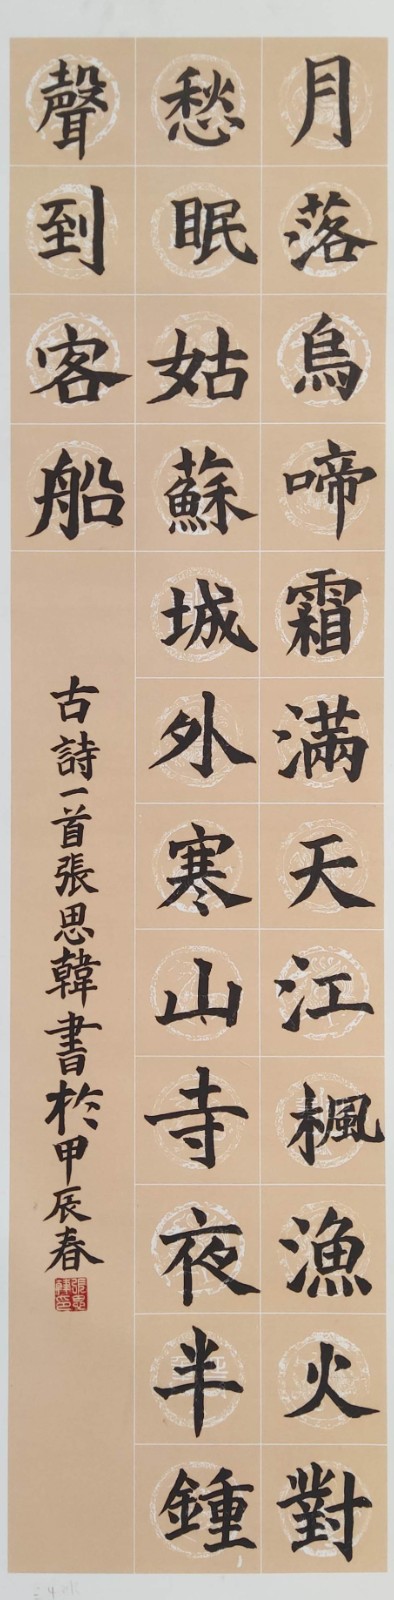 月落烏啼霜滿天江楓漁火對
愁眠姑蘇城外寒山寺夜半鍾
聲到客船
古詩一首張思韓書於甲辰春